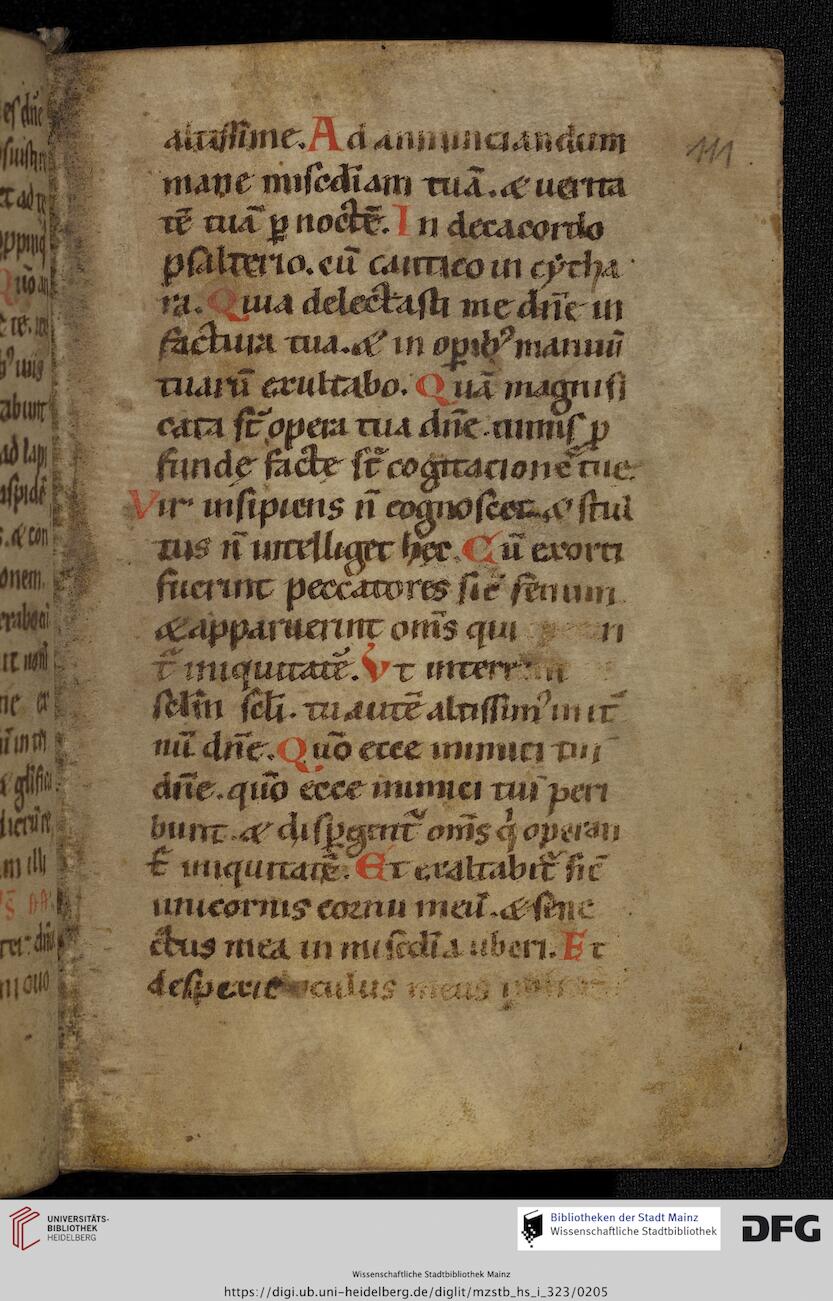 altissime. Ad annunciandum
111
mane misc̄diam tuā. & uerita
tē tuā ꝑ noctē. In decacordo
psalterio. cū cantico in cẏtha
ra. Quia delectasti me dn̄e in
factura tua. & in oꝑibꝰ manuū
tuarū exultabo. Quā magnifi
cata st̄ opera tua dn̄e. nimis ꝓ
funde facte st̄ cogitacione tue.
Vir insipiens n̄ cognoscet. & stul
tus n̄ intelliget hec. Cū exorti
fuerint peccatores sic̄ fenum
& apparuerint om̄s qui n
t̄ iniquitatē. Vt
sclm̄ scl̄i. tu autē altissimꝰ in et̄
nū dn̄e. Quō ecce inimici tui
dn̄e. quō ecce inimici tui peri
bunt. & disꝑgent̄ om̄s q̇ operan
t̄ iniquitatē. Et exaltabit̄ sic̄
unicornis cornu meū. & sene
ctus mea in misc̄dia uberi. Et
despexit oculus meus
es dn̄e
UNIVERSITÄTS-
BIBLIOTHEK
HEIDELBERG
Bibliotheken der Stadt Mainz
Wissenschaftliche Stadtbibliothek
DFG
Wissenschaftliche Stadtbibliothek Mainz
https://digi.ub.uni-heidelberg.de/diglit/mzstb_hs_i_323/0205